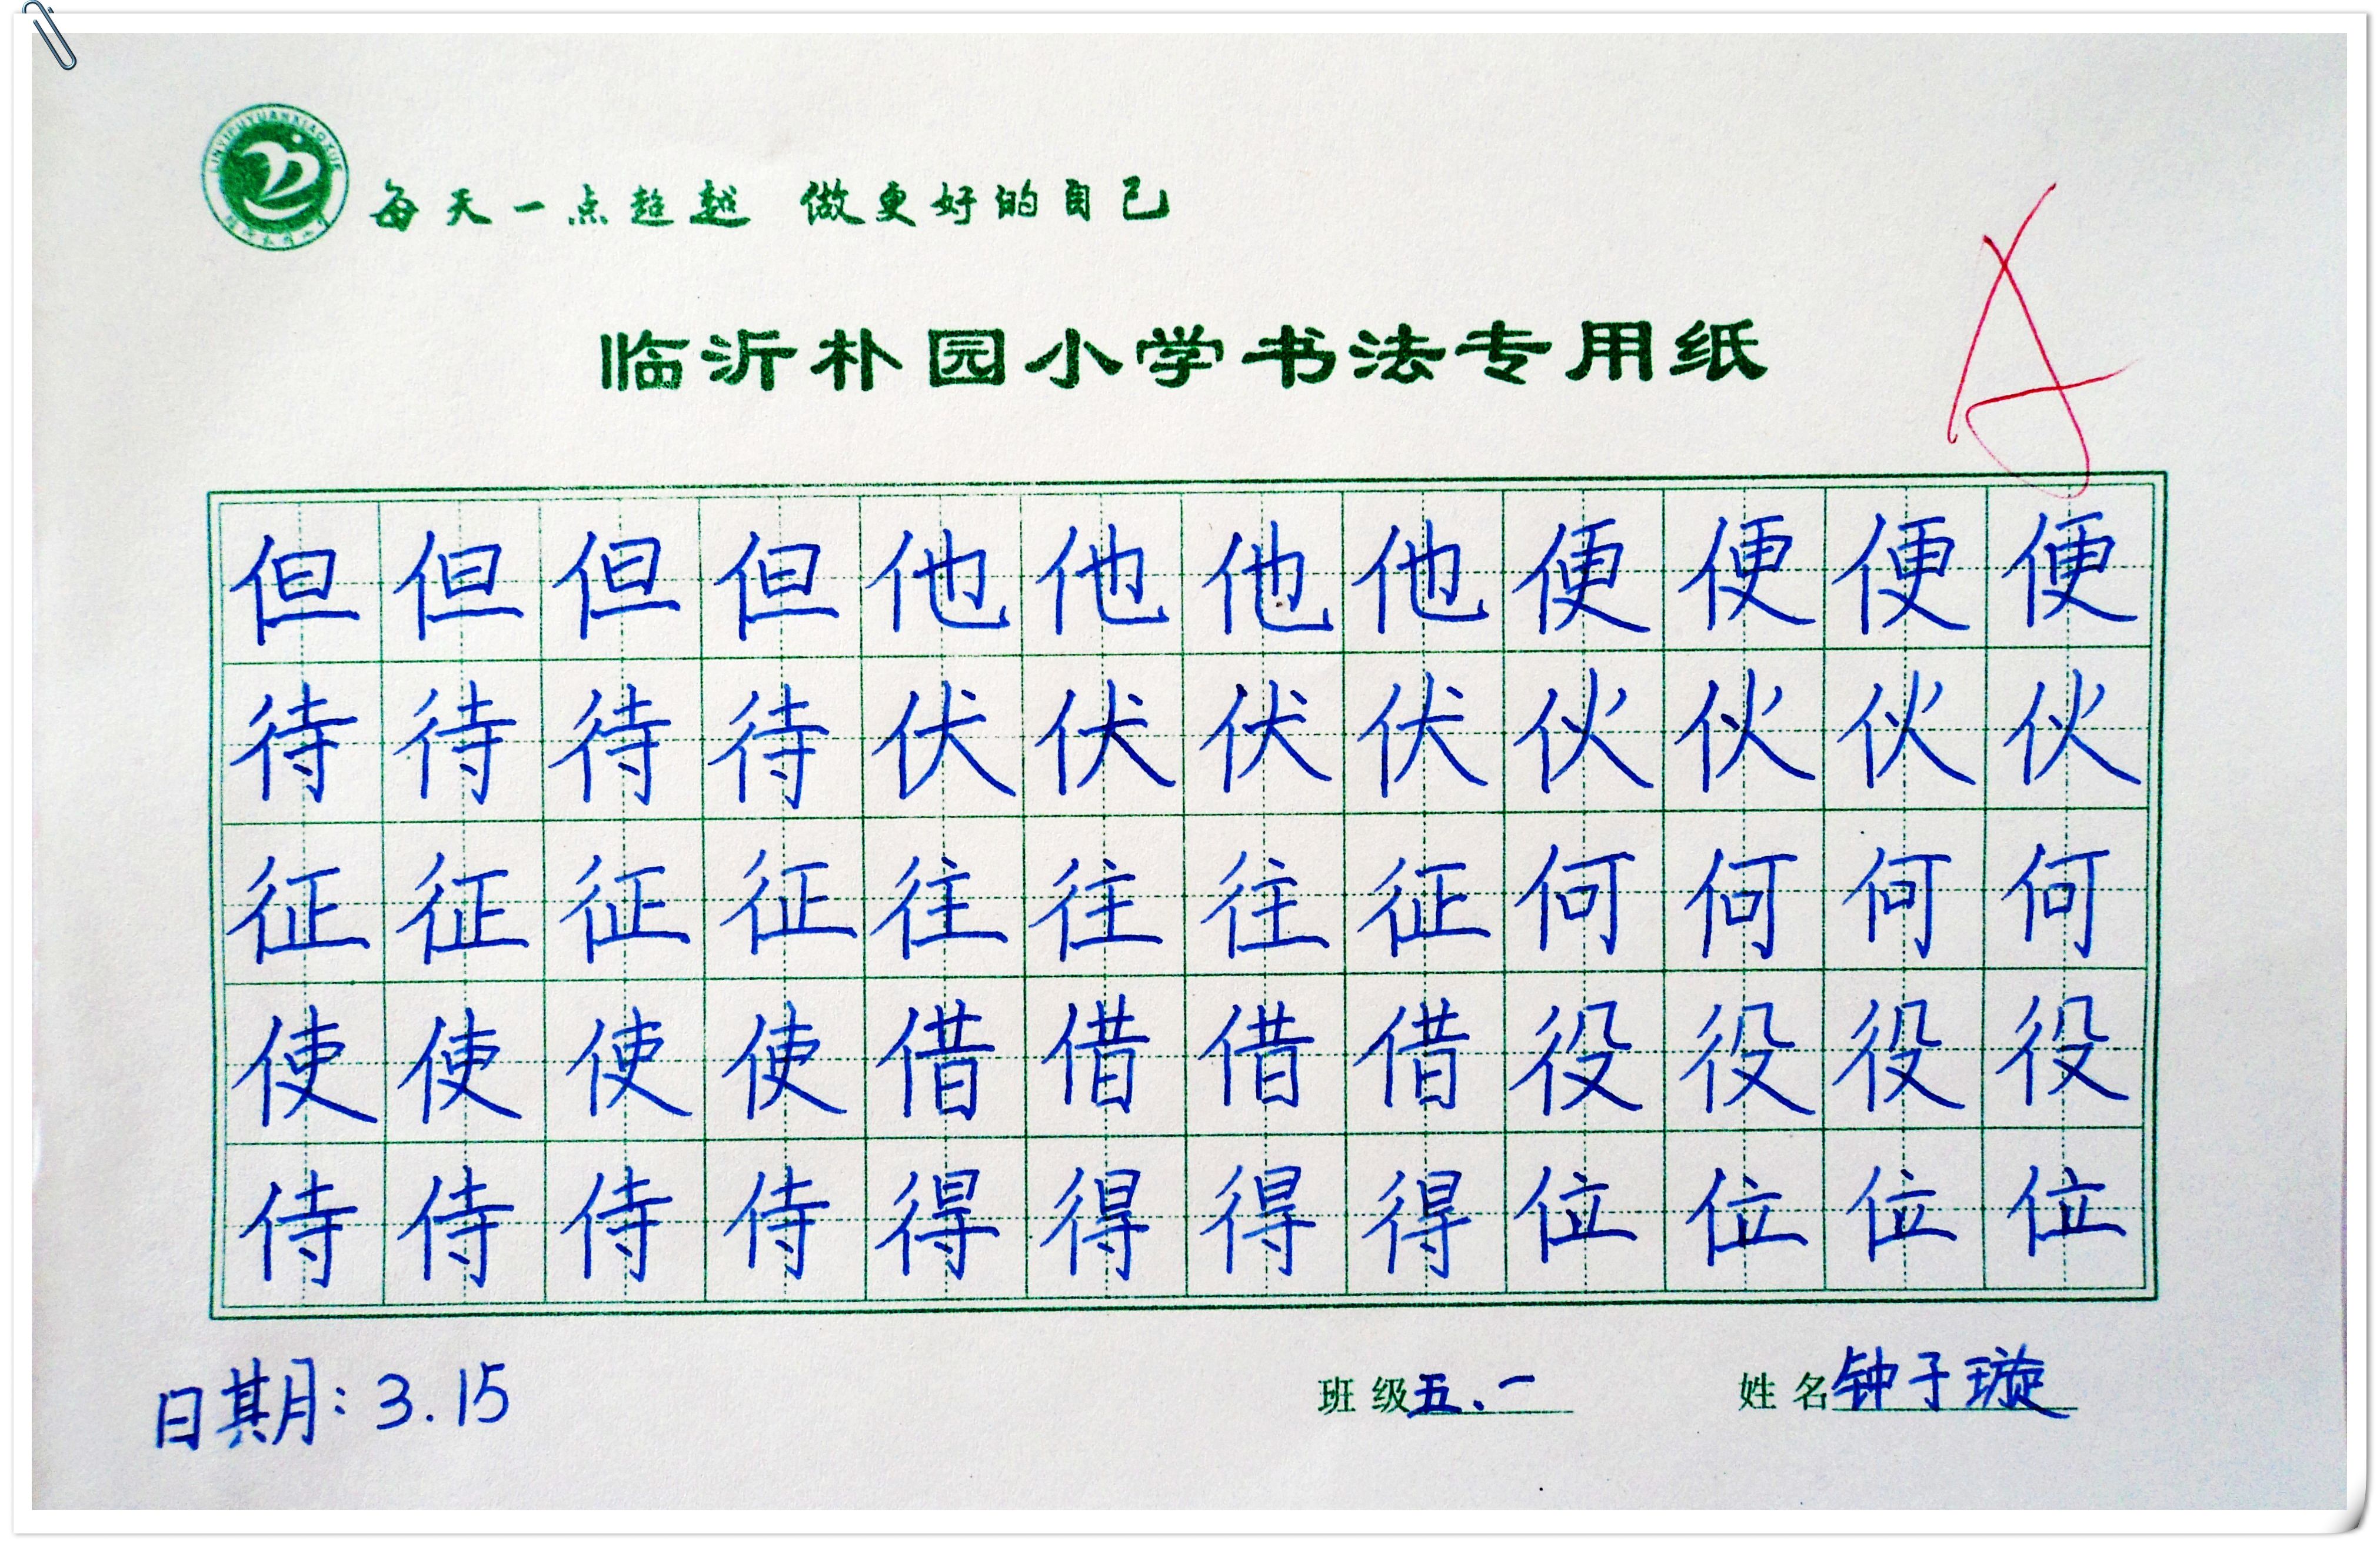 LINYIPUYUANXIAOXUE
每天一点超越 做更好的自己
临沂朴园小学书法专用纸
A
但但但但他他他他便便便便
待待待待伏伏伏伏伙伙伙伙
征征征征往往往征何何何何
使使使使借借借借役役役役
侍侍侍侍得得得得位位位位
日期:3.15 班级五、一 姓名钟子璇